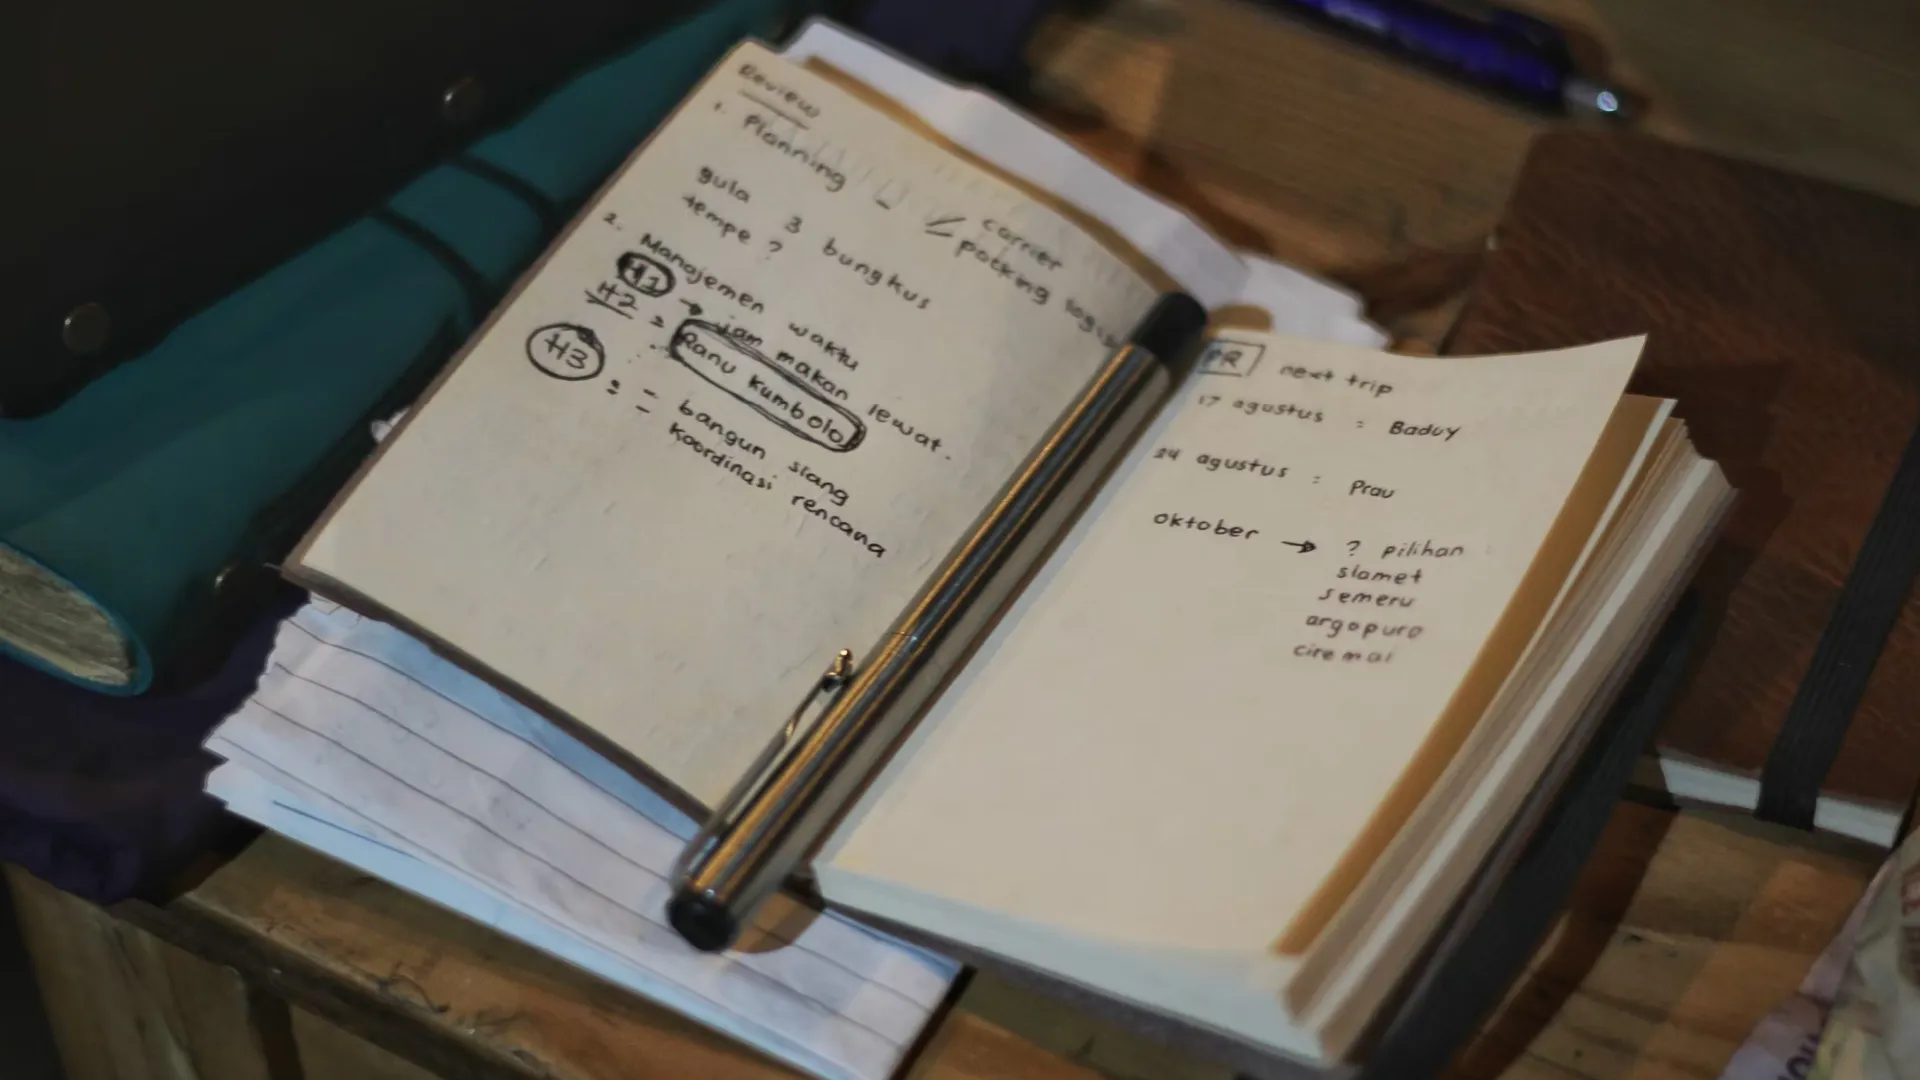 Review
1. Planning
carrier
packing logis
gula 3 bungkus
tempe ?
2. Manajemen waktu
H1 → jam makan lewat.
H2 = Ranu kumbolo
H3 = - bangun siang
- koordinasi rencana
PR next trip
17 agustus : Baduy
24 agustus : Prau
oktober → ? pilihan :
slamet
semeru
argopuro
ciremai